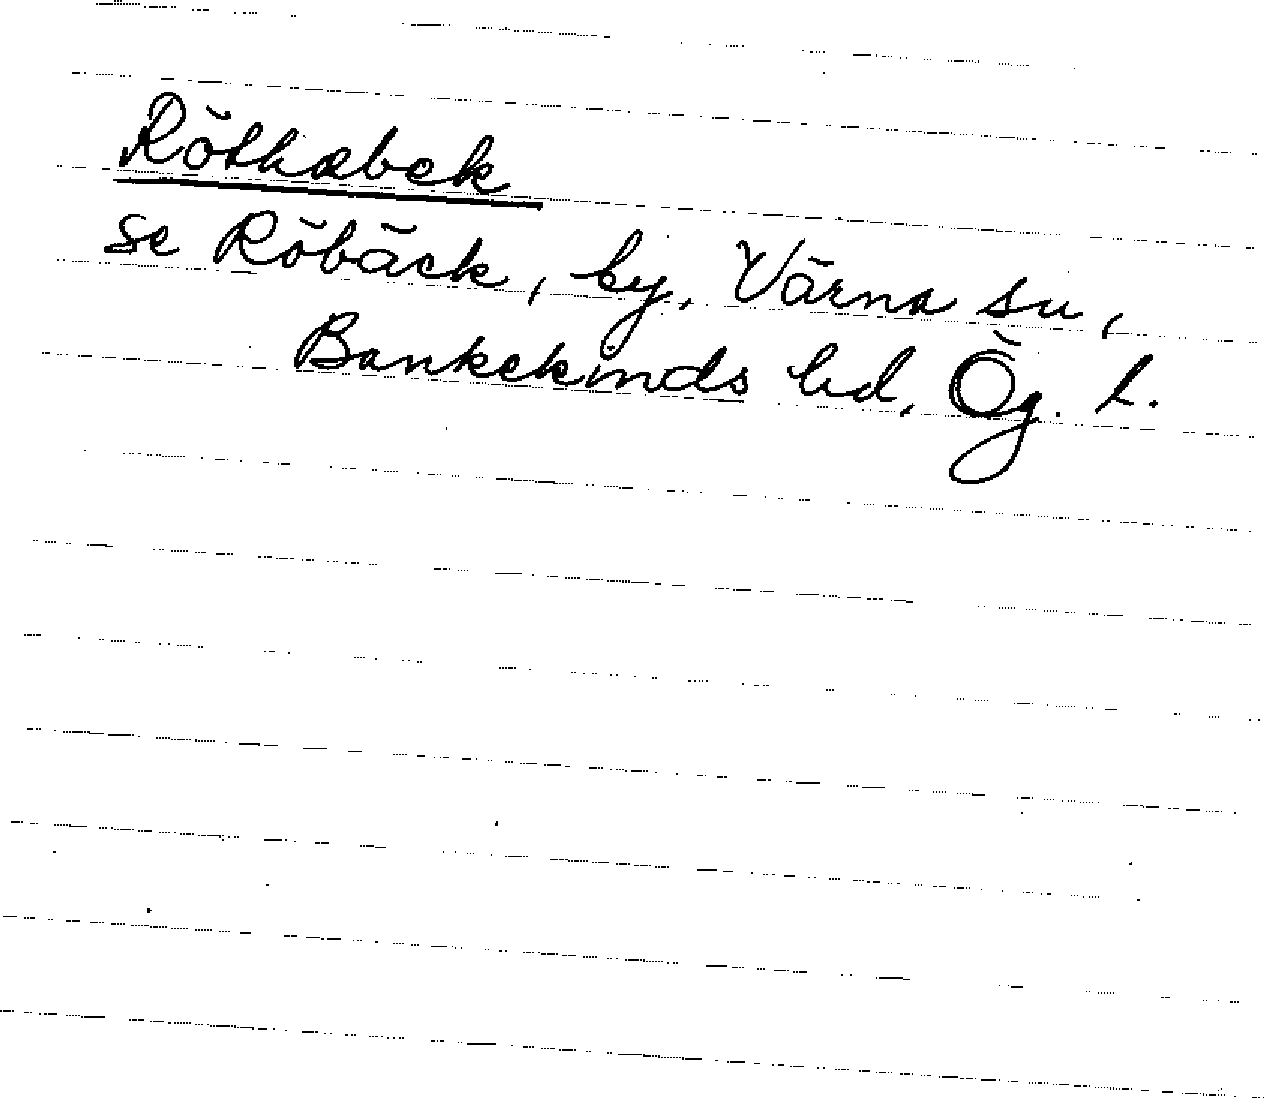 Röthæbek
se Röbäck, by, Värna sn,
Bankekinds hd, Ög. l.